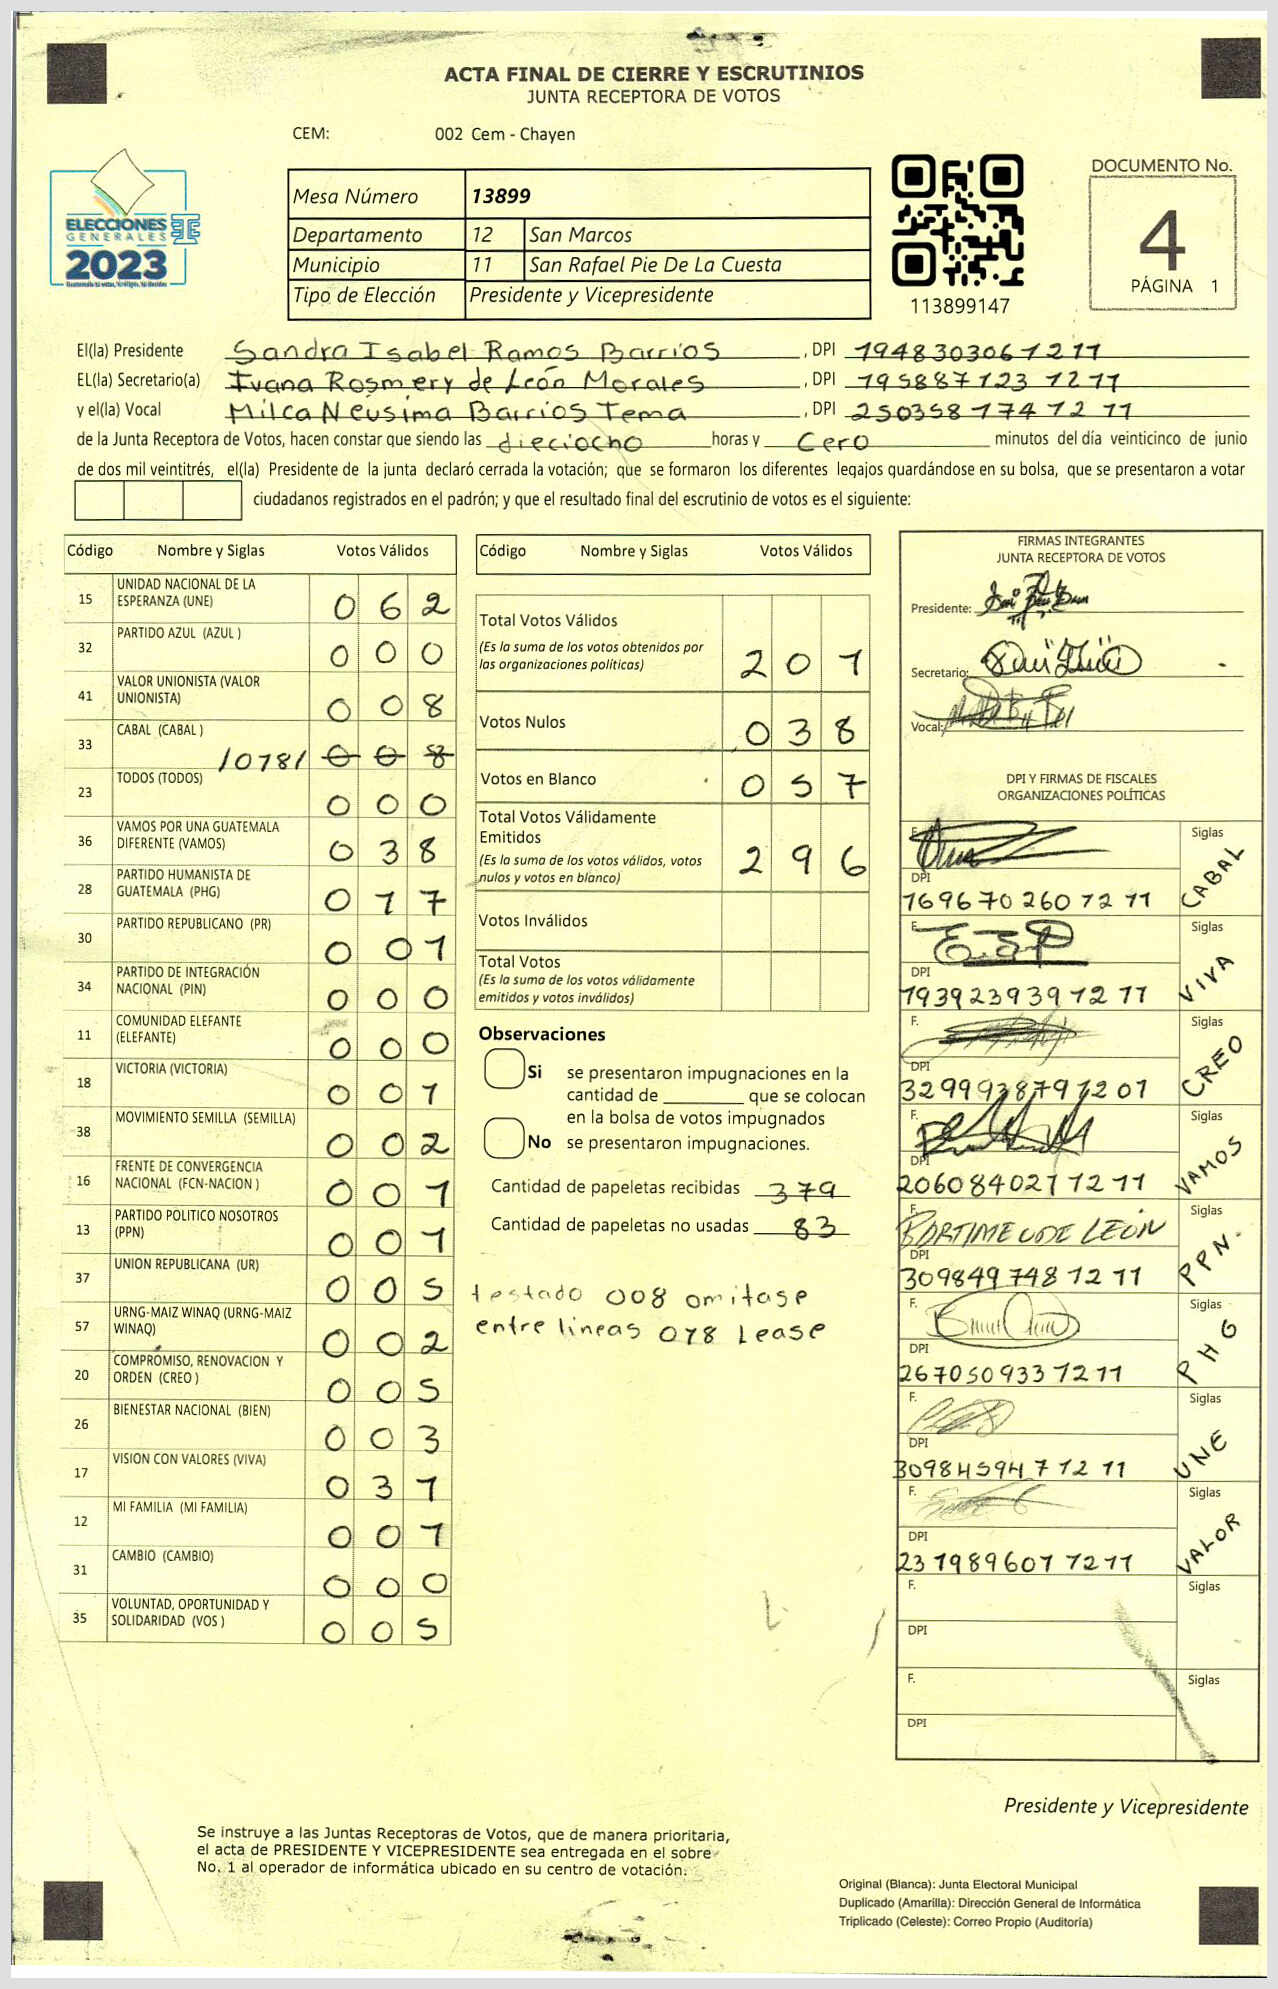 ACTA FINAL DE CIERRE Y ESCRUTINIOS
JUNTA RECEPTORA DE VOTOS
CEM: 002 Cem - Chayen
ELECCIONES
GENERALES
2023
Mesa Número 13899
Departamento 12 San Marcos
Municipio 11 San Rafael Pie De La Cuesta
Tipo de Elección Presidente y Vicepresidente
113899147
DOCUMENTO No.
4
PÁGINA 1
El(la) Presidente Sandra Isabel Ramos Barrios , DPI 1948303061211
EL(la) Secretario(a) Ivana Rosmery de León Morales , DPI 195887123 1211
y el(la) Vocal Milca Neusima Barrios Tema , DPI 250358174 1211
de la Junta Receptora de Votos, hacen constar que siendo las dieciocho horas y Cero minutos del día veinticinco de junio
de dos mil veintitrés, el(la) Presidente de la junta declaró cerrada la votación; que se formaron los diferentes legajos quardándose en su bolsa, que se presentaron a votar
ciudadanos registrados en el padrón; y que el resultado final del escrutinio de votos es el siguiente:
Código Nombre y Siglas Votos Válidos
15 UNIDAD NACIONAL DE LA ESPERANZA (UNE) 062
32 PARTIDO AZUL (AZUL ) 000
41 VALOR UNIONISTA (VALOR UNIONISTA) 008
33 CABAL (CABAL ) /078/ 008
23 TODOS (TODOS) 000
36 VAMOS POR UNA GUATEMALA DIFERENTE (VAMOS) 038
28 PARTIDO HUMANISTA DE GUATEMALA (PHG) 017
30 PARTIDO REPUBLICANO (PR) 001
34 PARTIDO DE INTEGRACIÓN NACIONAL (PIN) 000
11 COMUNIDAD ELEFANTE (ELEFANTE) 000
18 VICTORIA (VICTORIA) 001
38 MOVIMIENTO SEMILLA (SEMILLA) 002
16 FRENTE DE CONVERGENCIA NACIONAL (FCN-NACION ) 001
13 PARTIDO POLITICO NOSOTROS (PPN) 001
37 UNION REPUBLICANA (UR) 005
57 URNG-MAIZ WINAQ (URNG-MAIZ WINAQ) 002
20 COMPROMISO, RENOVACION Y ORDEN (CREO ) 005
26 BIENESTAR NACIONAL (BIEN) 003
17 VISION CON VALORES (VIVA) 031
12 MI FAMILIA (MI FAMILIA) 001
31 CAMBIO (CAMBIO) 000
35 VOLUNTAD, OPORTUNIDAD Y SOLIDARIDAD (VOS ) 005
Código Nombre y Siglas Votos Válidos
Total Votos Válidos 201
(Es la suma de los votos obtenidos por
las organizaciones políticas)
Votos Nulos 038
Votos en Blanco 057
Total Votos Válidamente
Emitidos 296
(Es la suma de los votos válidos, votos
nulos y votos en blanco)
Votos Inválidos
Total Votos
(Es la suma de los votos válidamente
emitidos y votos inválidos)
Observaciones
Si se presentaron impugnaciones en la
cantidad de ________ que se colocan
en la bolsa de votos impugnados
No se presentaron impugnaciones.
Cantidad de papeletas recibidas 379
Cantidad de papeletas no usadas 83
testado 008 omitase
entre lineas 018 Lease
FIRMAS INTEGRANTES
JUNTA RECEPTORA DE VOTOS
Presidente:
Secretario:
Vocal:
DPI Y FIRMAS DE FISCALES
ORGANIZACIONES POLÍTICAS
F. Siglas CABAL
DPI
169670260 1211
F. Siglas VIVA
DPI
193923939 1211
F. Siglas CREO
DPI
329993879 1201
F. Siglas VAMOS
DPI
206084021 1211
F. BARTIMEO DE LEÓN Siglas PPN.
DPI
309849748 1211
F. Siglas PHG
DPI
267050933 1211
F. Siglas UNE
DPI
309845947 1211
F. Siglas VALOR
DPI
231989601 1211
F. Siglas
DPI
F. Siglas
DPI
Presidente y Vicepresidente
Se instruye a las Juntas Receptoras de Votos, que de manera prioritaria,
el acta de PRESIDENTE Y VICEPRESIDENTE sea entregada en el sobre
No. 1 al operador de informática ubicado en su centro de votación.
Original (Blanca): Junta Electoral Municipal
Duplicado (Amarilla): Dirección General de Informática
Triplicado (Celeste): Correo Propio (Auditoría)